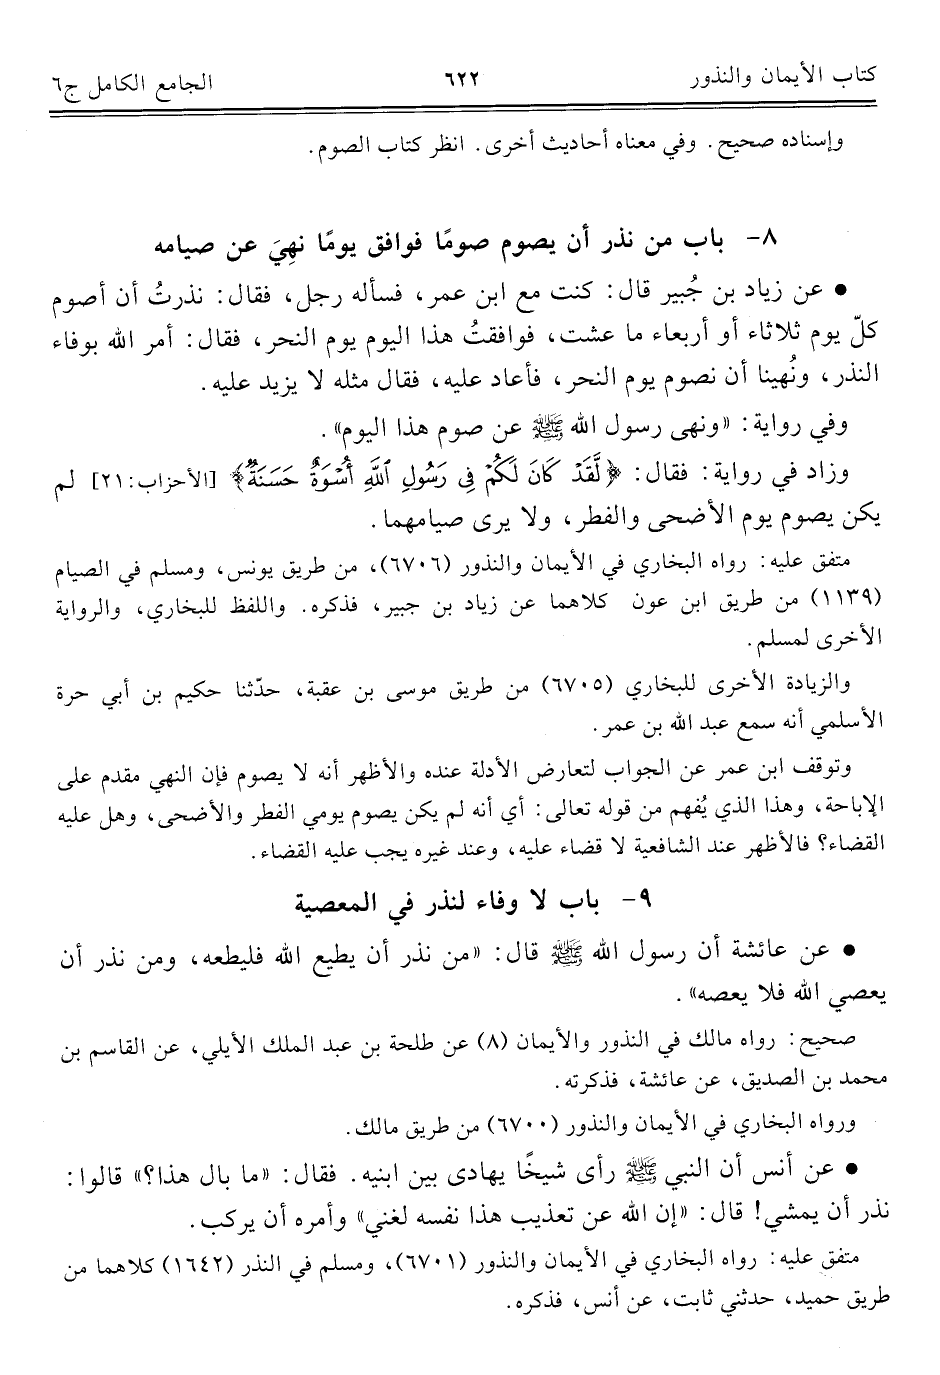 كتاب الأيمان والنذور ٦٢٢ الجامع الكامل ج٦
وإسناده صحيح. وفي معناه أحاديث أخرى. انظر كتاب الصوم.
٨- باب من نذر أن يصوم صومًا فوافق يومًا نهِيَ عن صيامه
• عن زياد بن جُبير قال: كنت مع ابن عمر، فسأله رجل، فقال: نذرتُ أن أصوم
كلّ يوم ثلاثاء أو أربعاء ما عشت، فوافقتُ هذا اليوم يوم النحر، فقال: أمر الله بوفاء
النذر، ونُهينا أن نصوم يوم النحر، فأعاد عليه، فقال مثله لا يزيد عليه.
وفي رواية: «ونهى رسول الله ﷺ عن صوم هذا اليوم».
وزاد في رواية: فقال: ﴿لَّقَدْ كَانَ لَكُمْ فِى رَسُولِ ٱللَّهِ أُسْوَةٌ حَسَنَةٌ﴾ [الأحزاب: ٢١] لم
يكن يصوم يوم الأضحى والفطر، ولا يرى صيامهما.
متفق عليه: رواه البخاري في الأيمان والنذور (٦٧٠٦)، من طريق يونس، ومسلم في الصيام
(١١٣٩) من طريق ابن عون كلاهما عن زياد بن جبير، فذكره. واللفظ للبخاري، والرواية
الأخرى لمسلم.
والزيادة الأخرى للبخاري (٦٧٠٥) من طريق موسى بن عقبة، حدّثنا حكيم بن أبي حرة
الأسلمي أنه سمع عبد الله بن عمر.
وتوقف ابن عمر عن الجواب لتعارض الأدلة عنده والأظهر أنه لا يصوم فإن النهي مقدم على
الإباحة، وهذا الذي يُفهم من قوله تعالى: أي أنه لم يكن يصوم يومي الفطر والأضحى، وهل عليه
القضاء؟ فالأظهر عند الشافعية لا قضاء عليه، وعند غيره يجب عليه القضاء.
٩- باب لا وفاء لنذر في المعصية
• عن عائشة أن رسول الله ﷺ قال: «من نذر أن يطيع الله فليطعه، ومن نذر أن
يعصي الله فلا يعصه».
صحيح: رواه مالك في النذور والأيمان (٨) عن طلحة بن عبد الملك الأيلي، عن القاسم بن
محمد بن الصديق، عن عائشة، فذكرته.
ورواه البخاري في الأيمان والنذور (٦٧٠٠) من طريق مالك.
• عن أنس أن النبي ﷺ رأى شيخًا يهادى بين ابنيه. فقال: «ما بال هذا؟» قالوا:
نذر أن يمشي! قال: «إن الله عن تعذيب هذا نفسه لغني» وأمره أن يركب.
متفق عليه: رواه البخاري في الأيمان والنذور (٦٧٠١)، ومسلم في النذر (١٦٤٢) كلاهما من
طريق حميد، حدثني ثابت، عن أنس، فذكره.